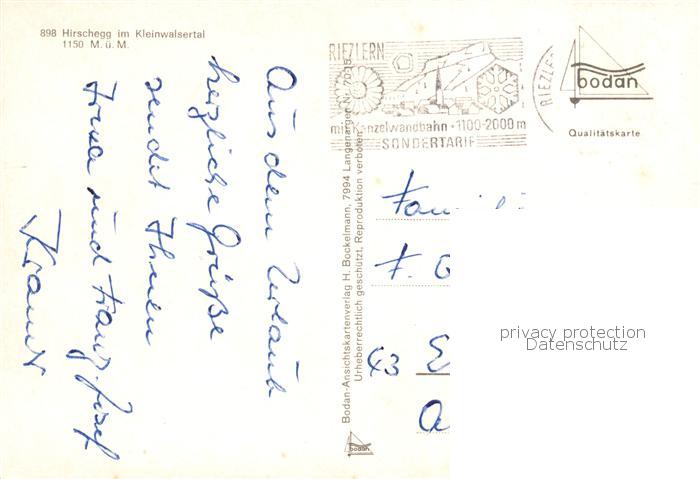 898 Hirschegg im Kleinwalsertal
1150 M. ü. M.
Aus dem Urlaub
herzliche Grüße
sendet Ihnen
und Franz-Josef
RIEZLERN
Kanzelwandbahn · 1100-2000 m
SONDERTARIF
RIEZLE
bodan
Qualitätskarte
Bodan-Ansichtskartenverlag H. Bockelmann, 7994 Langenargen Nr. 7015
Urheberrechtlich geschützt, Reproduktion verboten
bodan
Fam
F. G
43 E
privacy protection
Datenschutz